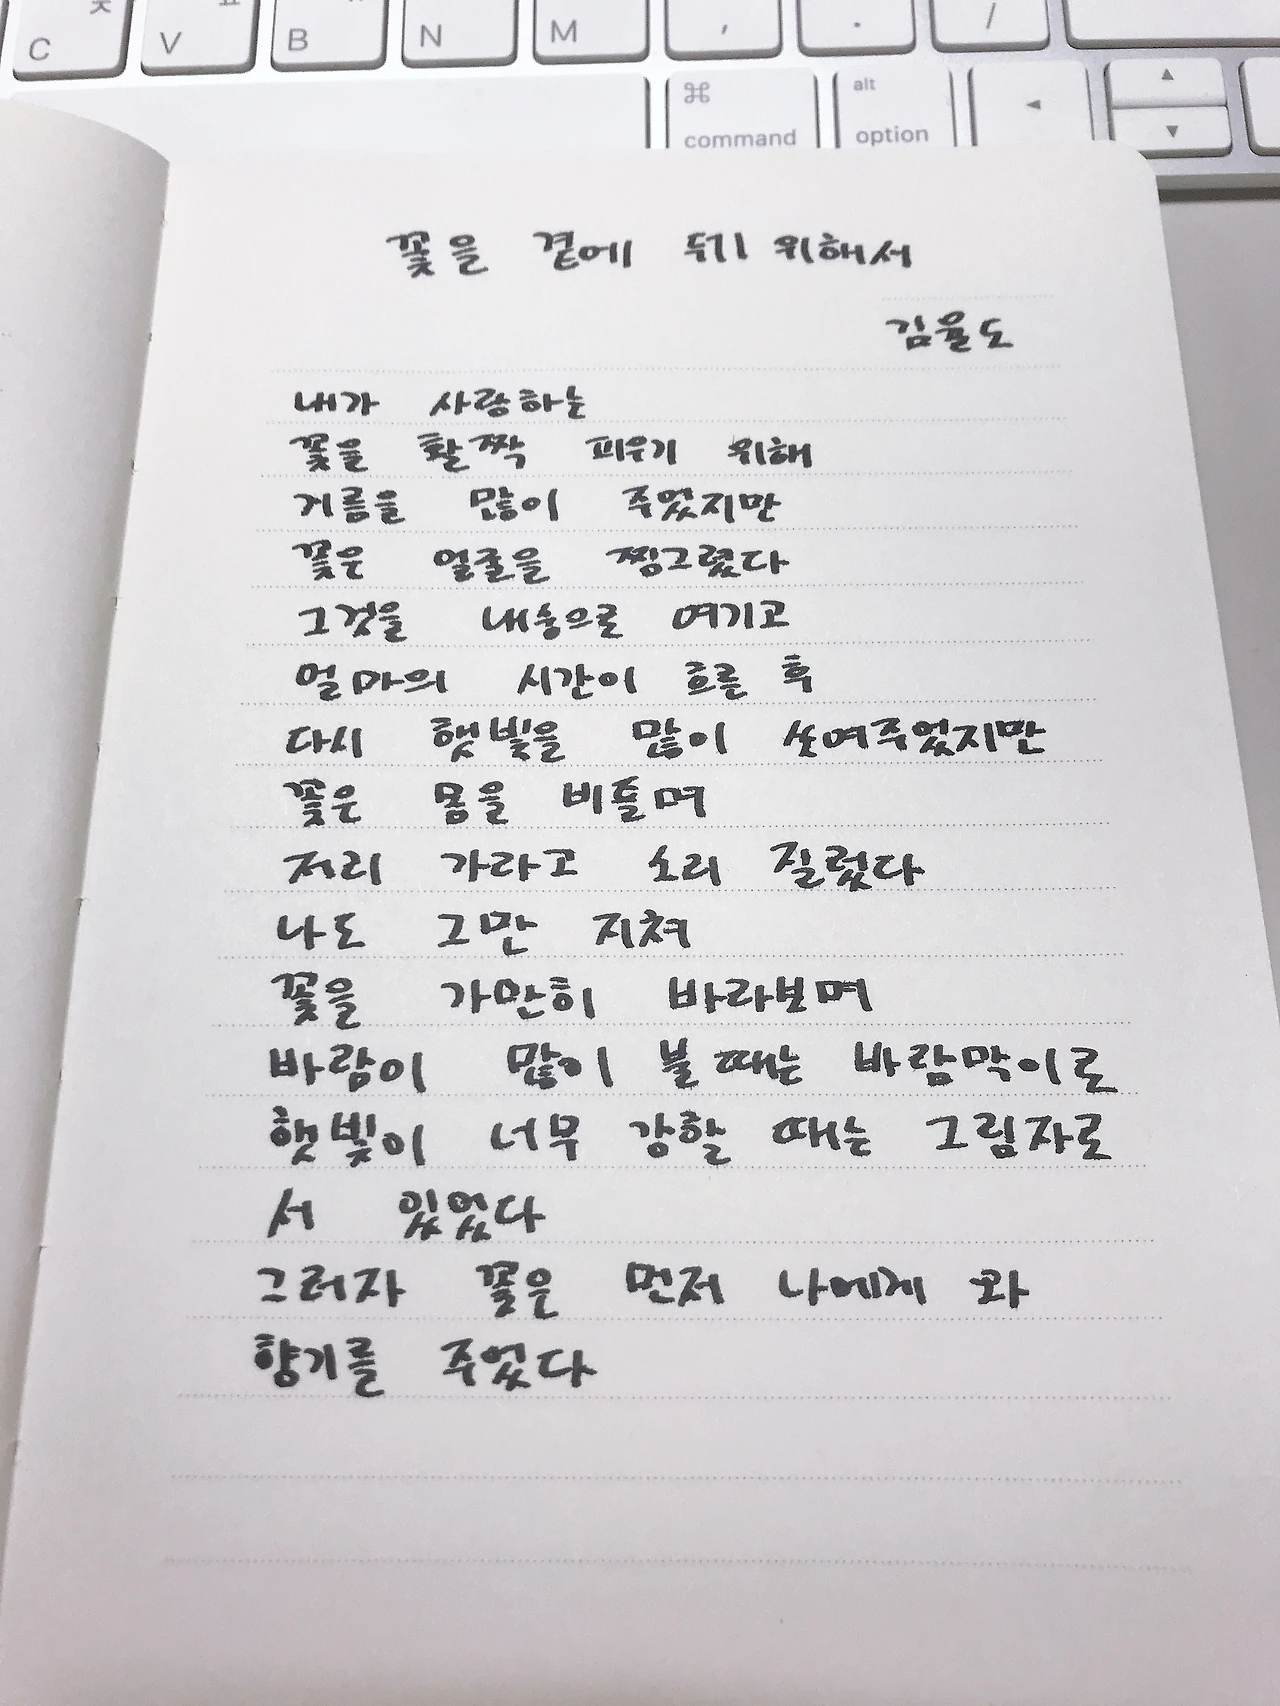 C V B N M , . /
⌘ alt ◄ ▲
command option ▼
꽃을 곁에 두기 위해서
김율도
내가 사랑하는
꽃을 활짝 피우기 위해
거름을 많이 주었지만
꽃은 얼굴을 찡그렸다
그것을 내숭으로 여기고
얼마의 시간이 흐른 후
다시 햇빛을 많이 쏘여주었지만
꽃은 몸을 비틀며
저리 가라고 소리 질렀다
나도 그만 지쳐
꽃을 가만히 바라보며
바람이 많이 불 때는 바람막이로
햇빛이 너무 강할 때는 그림자로
서 있었다
그러자 꽃은 먼저 나에게 와
향기를 주었다